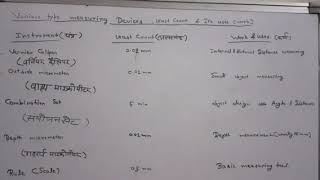 Various type measuring Devices, Least Count & Its use (work)
Instrument (यंत्र) Least Count (अल्पतमांक) Work & uses (कार्य)
Vernier Caliper 0.02 mm Internal & External Distance measuring
(वर्नियर कैलिपर)
Outside micrometer 0.01 mm Small object measuring
(बाह्य माइक्रोमीटर)
Combination Set 5 min object design use Angle & Distance
(संयोजन सेट)
Depth micrometer 0.01 mm Depth measurement
(गहराई माइक्रोमीटर)
Rule (Scale) 0.5 mm Basic measuring tool